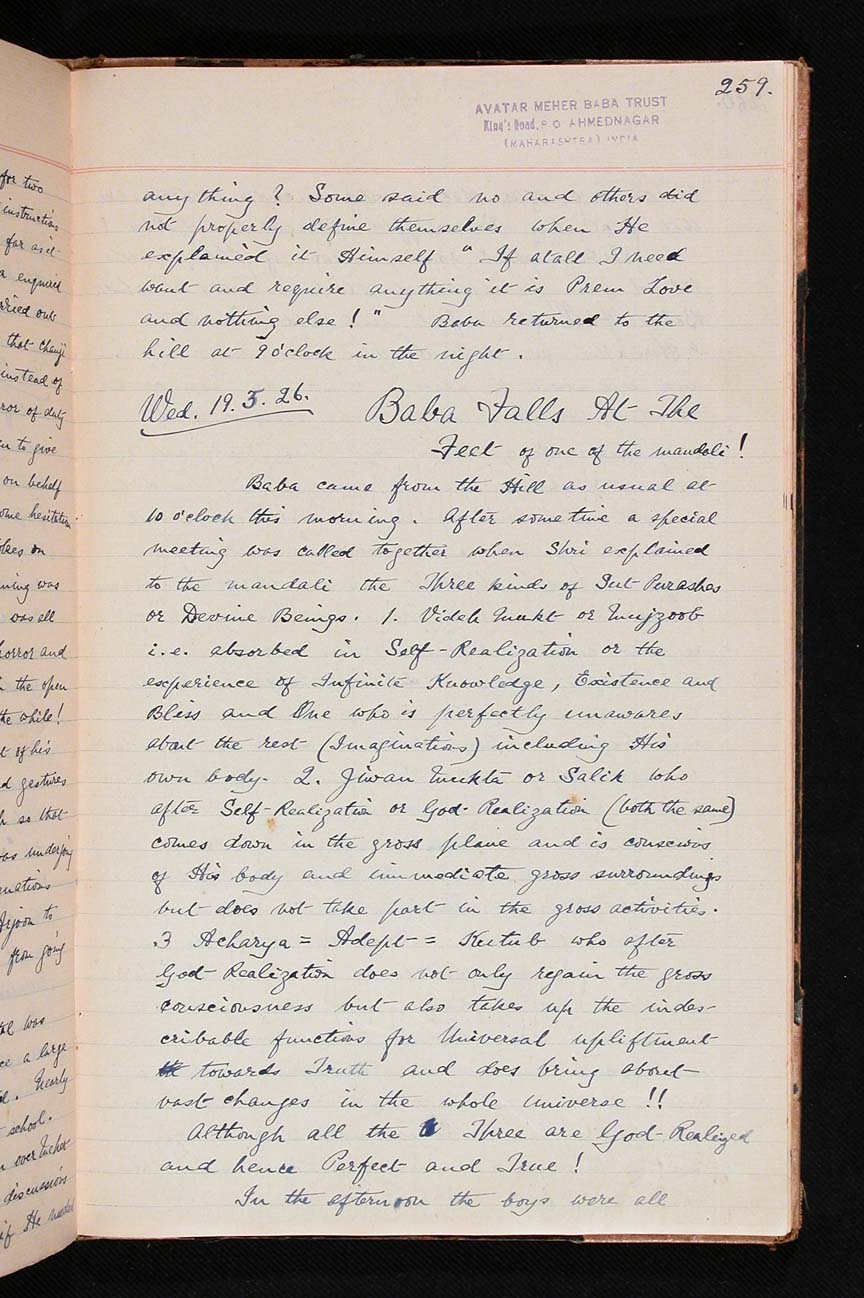 for two
instructions
far as it
a enquired
rried out
that change
instead of
ror of duty
en to give
on behalf
ome hesitation
okes on
ning was
was all
horror and
the open
the while!
t of his
d gestures
h so that
as undergoing
mations
Arjoon to
from going
was
ce a large
d. Nearly
school.
discussions
if He needed
259.
AVATAR MEHER BABA TRUST
King's Road, P.O AHMEDNAGAR
(MAHARASHTRA) INDIA
any thing? Some said no and others did
not properly define themselves when He
explained it Himself "If atall I need
want and require anything it is Prem Love
and nothing else!" Baba returned to the
hill at 9 o'clock in the night.
Wed. 19.5.26. Baba Falls At The
Feet of one of the mandali!
Baba came from the Hill as usual at
10 o'clock this morning. After some time a special
meeting was called together when Shri explained
to the mandali the Three kinds of Sut-Purashas
or Devine Beings. 1. Videh Mukt or Mujzoob
i.e. absorbed in Self-Realization or the
experience of Infinite Knowledge, Existence and
Bliss and One who is perfectly unawares
about the rest (Imaginations) including His
own body. 2. Jiwan Mukta or Salik who
after Self-Realization or God-Realization (both the same)
comes down in the gross plane and is conscious
of His body and immediate gross surroundings
but does not take part in the gross activities.
3 Acharya = Adept = Kutub who after
God-Realization does not only regain the gross
consciousness but also takes up the indes-
cribable functions for Universal upliftment
towards Truth and does bring about
vast changes in the whole universe!!
Although all the Three are God-Realized
and hence Perfect and True!
In the afternoon the boys were all